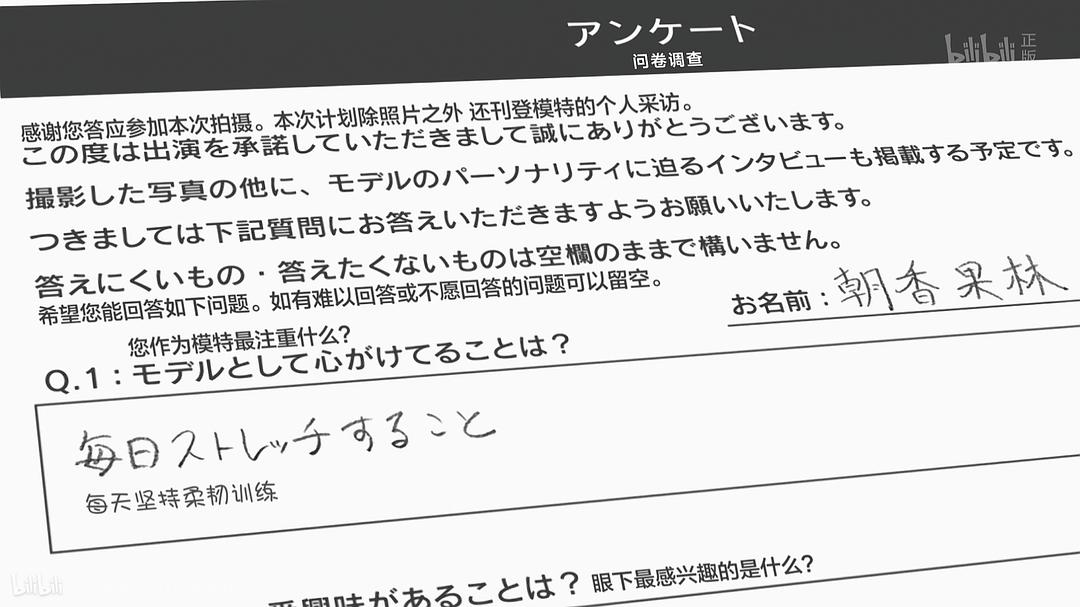 アンケート
问卷调查
bilibili 正版
感谢您答应参加本次拍摄。本次计划除照片之外 还刊登模特的个人采访。
この度は出演を承諾していただきまして誠にありがとうございます。
撮影した写真の他に、モデルのパーソナリティに迫るインタビューも掲載する予定です。
つきましては下記質問にお答えいただきますようお願いいたします。
答えにくいもの・答えたくないものは空欄のままで構いません。
希望您能回答如下问题。如有难以回答或不愿回答的问题可以留空。
お名前：朝香果林
您作为模特最注重什么?
Q.1：モデルとして心がけてることは？
毎日ストレッチすること
每天坚持柔韧训练
興味があることは？ 眼下最感兴趣的是什么?
bilibili